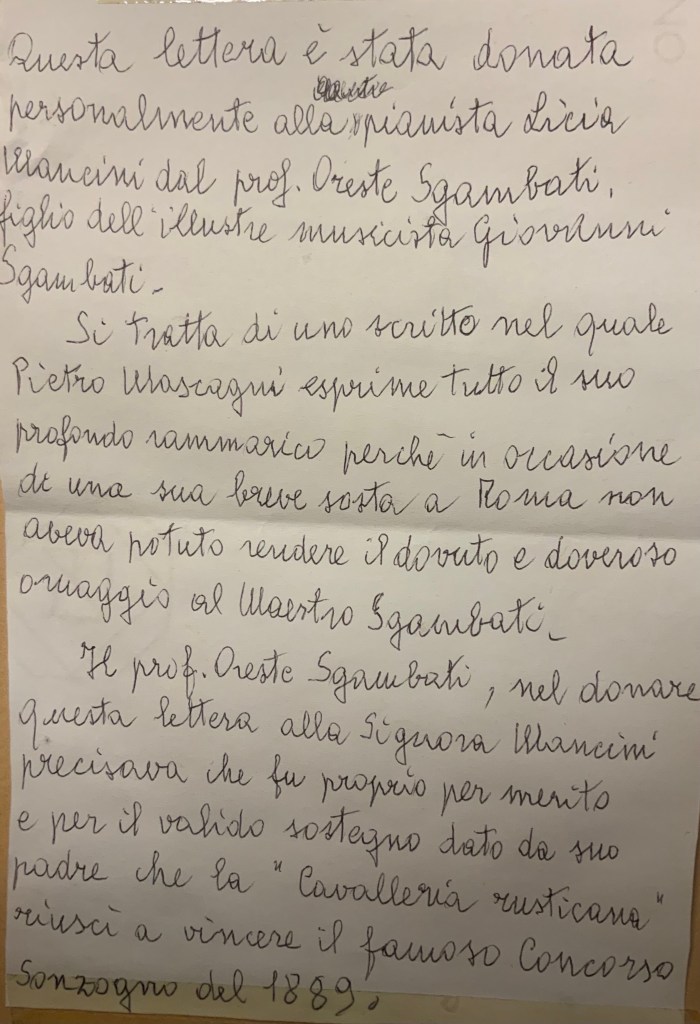 Questa lettera è stata donata
personalmente alla pianista Licia
Mancini dal prof. Oreste Sgambati,
figlio dell'illustre musicista Giovanni
Sgambati.
Si tratta di uno scritto nel quale
Pietro Mascagni esprime tutto il suo
profondo rammarico perchè in occasione
di una sua breve sosta a Roma non
aveva potuto rendere il dovuto e doveroso
omaggio al Maestro Sgambati.
Il prof. Oreste Sgambati, nel donare
questa lettera alla Signora Mancini
precisava che fu proprio per merito
e per il valido sostegno dato da suo
padre che la "Cavalleria rusticana"
riuscì a vincere il famoso Concorso
Sonzogno del 1889.